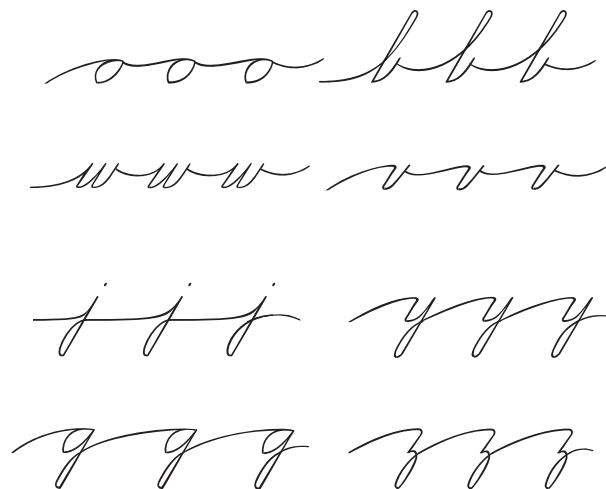 ooo bbb
www vvv
jjj yyy
ggg zzz